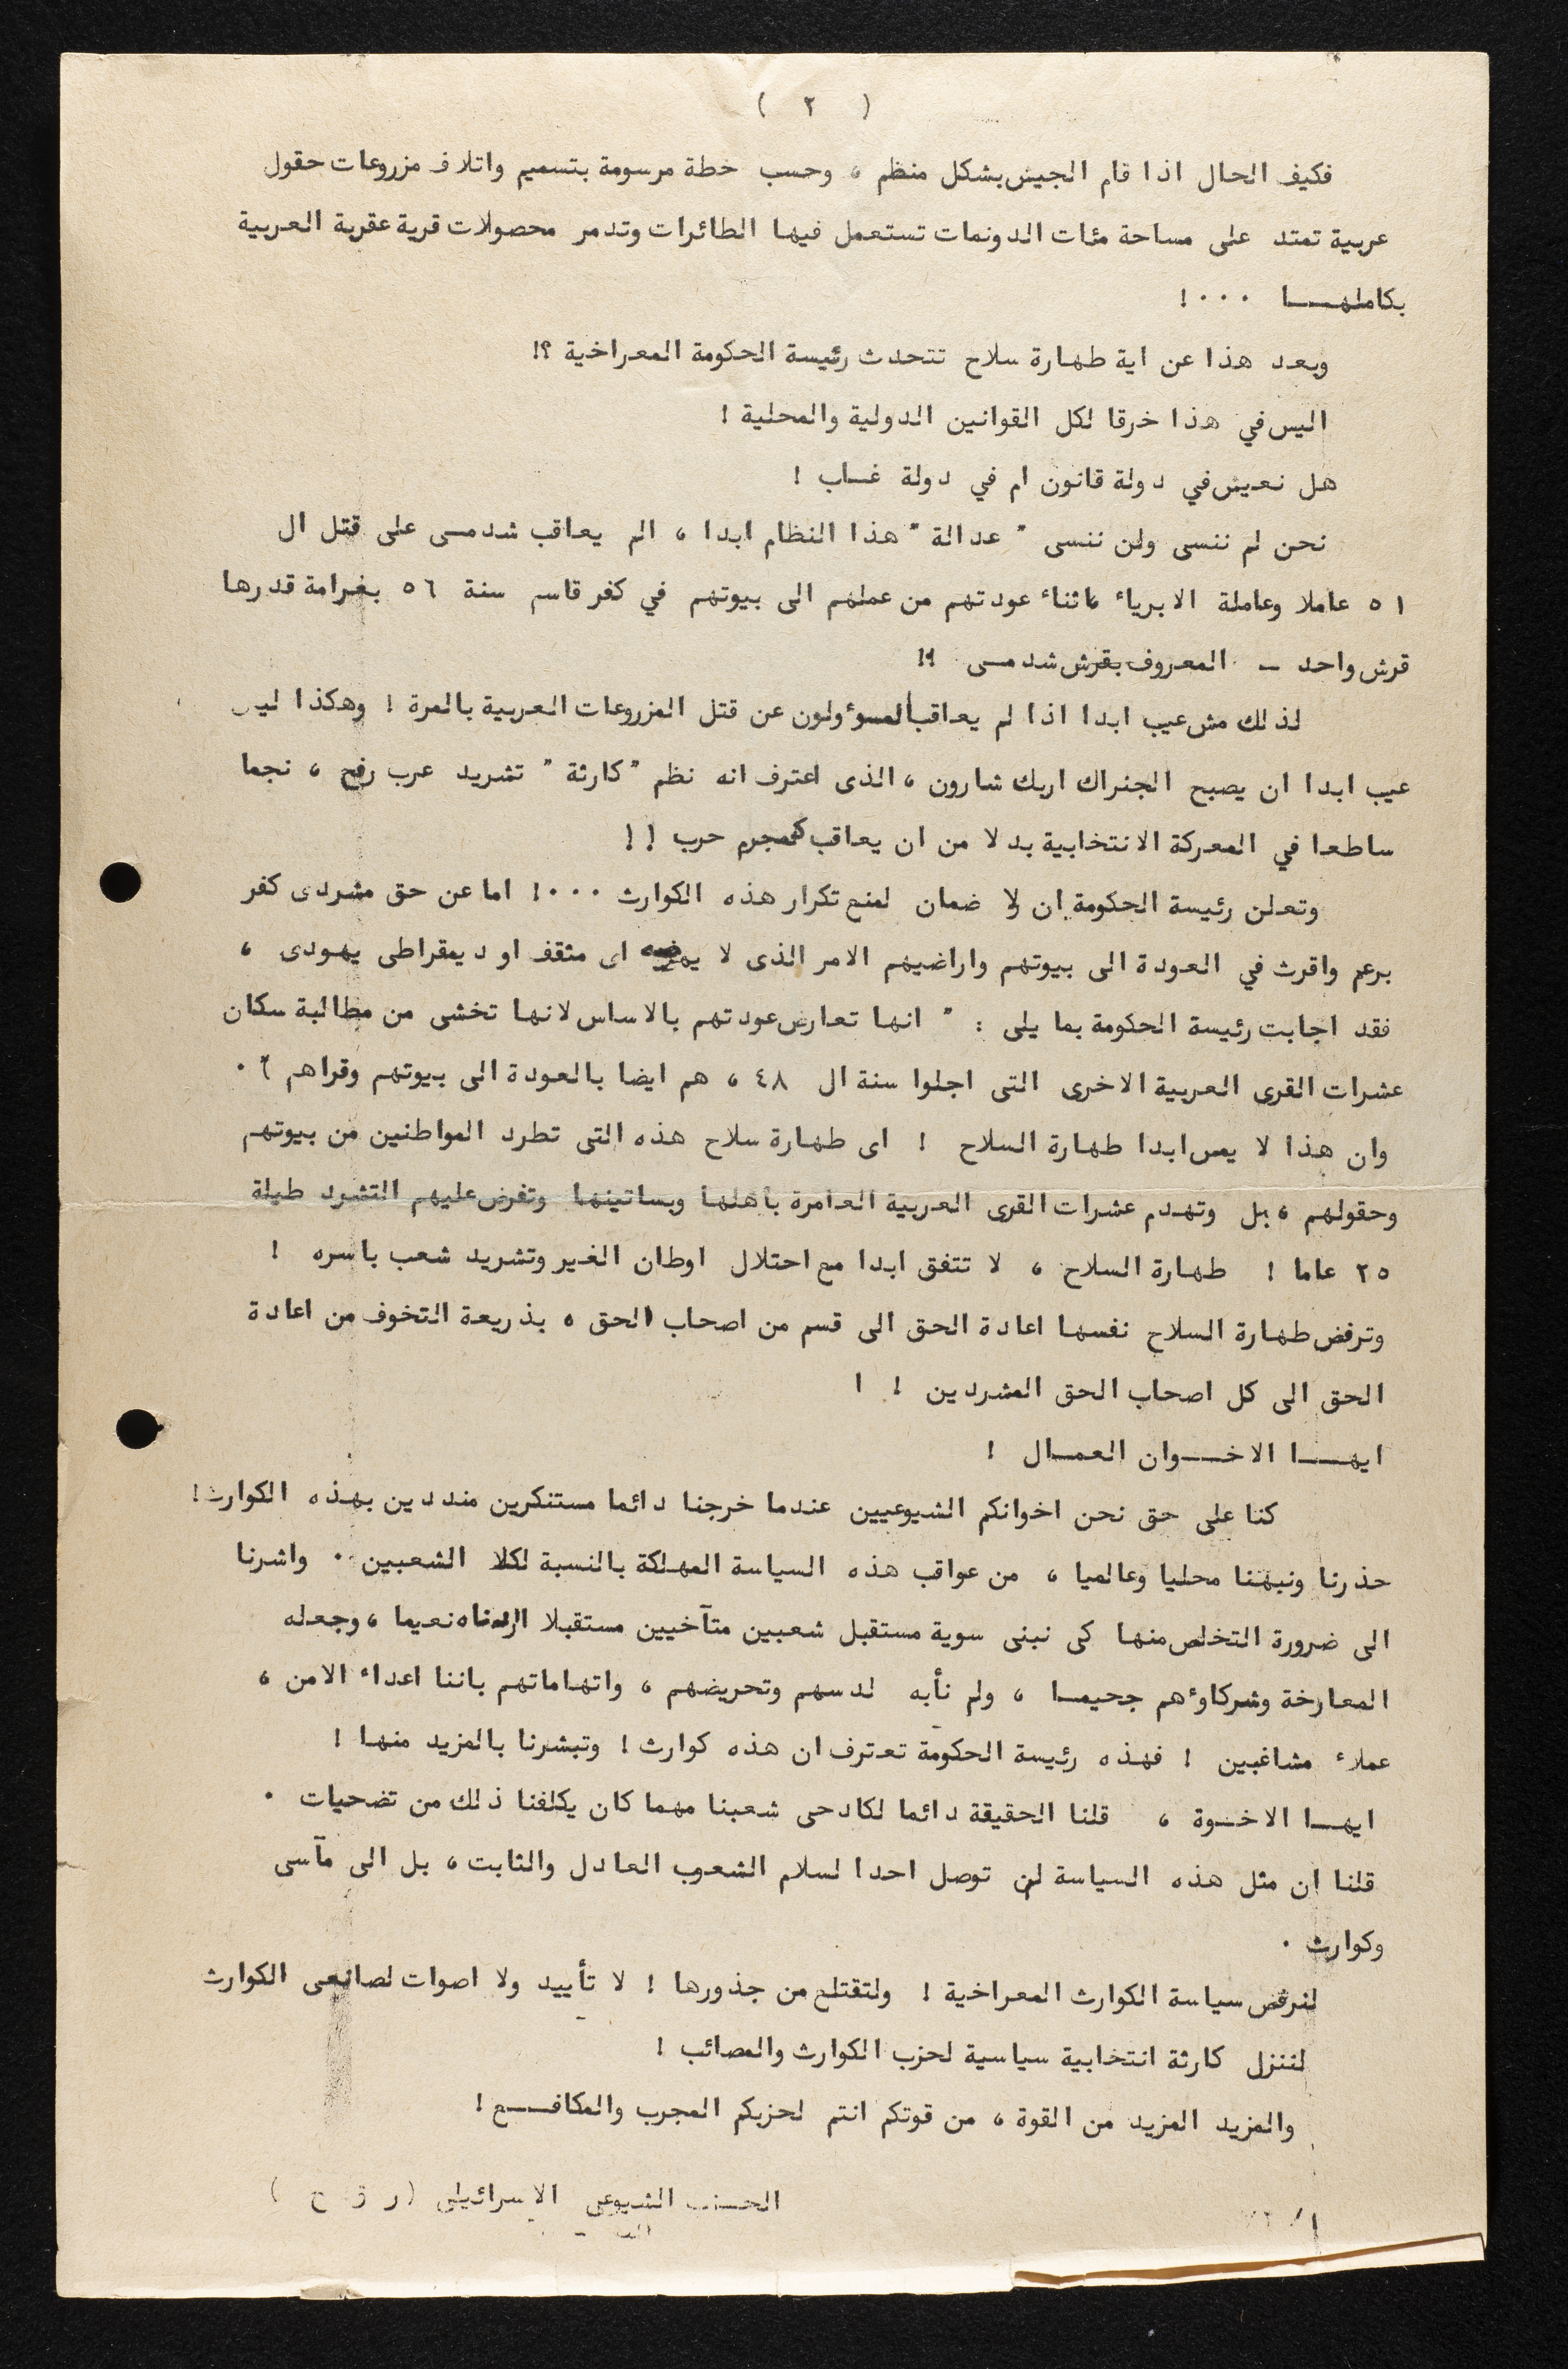 ( ٢ )
فكيف الحال اذا قام الجيش بشكل منظم ، وحسب خطة مرسومة بتسميم واتلاف مزروعات حقول
عربية تمتد على مساحة مئات الدونمات تستعمل فيها الطائرات وتدمر محصولات قرية عقربة العربية
بكاملهـــا ٠٠٠!
وبعد هذا عن اية طهارة سلاح تتحدث رئيسة الحكومة المعراخية ؟!
اليس في هذا خرقا لكل القوانين الدولية والمحلية !
هل نعيش في دولة قانون ام في دولة غـاب !
نحن لم ننسى ولن ننسى " عدالة " هذا النظام ابدا ، الم يعاقب شدمـى على قتل ال
٥١ عاملا وعاملة الابرياء ، اثناء عودتهم من عملهم الى بيوتهم في كفر قاسم سنة ٥٦ بغرامة قدرها
قرش واحد – المعروف بقرش شدمـى !!
لذلك مش عيب ابدا اذا لم يعاقب المسوءولون عن قتل المزروعات العربية بالمرة ! وهكذا ليس
عيب ابدا ان يصبح الجنراك اريك شارون ، الذى اعترف انه نظم " كارثة " تشريد عرب رفح ، نجما
ساطعا في المعركة الانتخابية بدلا من ان يعاقب كمجرم حرب !!
وتعلن رئيسة الحكومة ان لا ضمان لمنع تكرار هذه الكوارث ٠٠٠! اما عن حق مشردى كفر
برعم واقرث في العودة الى بيوتهم واراضيهم الامر الذى لا اى مثقف او ديمقراطى يهودى ،
فقد اجابت رئيسة الحكومة بما يلى : " انها تعارض عودتهم بالاساس لانها تخشى من مطالبة سكان
عشرات القرى العربية الاخرى التى اجلوا سنة ال ٤٨ ، هم ايضا بالعودة الى بيوتهم وقراهم " ٠
وان هذا لا يمس ابدا طهارة السلاح ! اى طهارة سلاح هذه التى تطرد المواطنين من بيوتهم
وحقولهم ، بل وتهدم عشرات القرى العربية العامرة باهلها وبساتينها وتفرض عليهم التشرد طيلة
٢٥ عاما ! طهارة السلاح ، لا تتفق ابدا مع احتلال اوطان الغير وتشريد شعب باسره !
وترفض طهارة السلاح نفسها اعادة الحق الى قسم من اصحاب الحق ، بذريعة التخوف من اعادة
الحق الى كل اصحاب الحق المشردين ! !
ايهـــا الاخــوان العمـال !
كنا على حق نحن اخوانكم الشيوعيين عندما خرجنا دائما مستنكرين منددين بهذه الكوارث!
حذرنا ونبهنا محليا وعالميا ، من عواقب هذه السياسة المهلكة بالنسبة لكلا الشعبين ٠ واشرنا
الى ضرورة التخلص منها كى نبنى سوية مستقبل شعبين متآخيين مستقبلا اردناه نعيما ، وجعله
المعارخة وشركاوءهم جحيمـا ، ولم نأبه لدسهم وتحريضهم ، واتهاماتهم باننا اعداء الامن ،
عملاء مشاغبين ! فهذه رئيسة الحكومة تعترف ان هذه كوارث ! وتبشرنا بالمزيد منها !
ايهــا الاخـوة ، قلنا الحقيقة دائما لكادحى شعبنا مهما كان يكلفنا ذلك من تضحيات ٠
قلنا ان مثل هذه السياسة لن توصل احدا لسلام الشعوب العادل والثابت ، بل الى مآسى
وكوارث ٠
لنرفض سياسة الكوارث المعراخية ! ولتقتلع من جذورها ! لا تأييد ولا اصوات لصانعى الكوارث
لننزل كارثة انتخابية سياسية لحزب الكوارث والمصائب !
والمزيد المزيد من القوة ، من قوتكم انتم لحزبكم المجرب والمكافـــع !
الحـزب الشيوعى الاسرائيلى ( ر ق ح )